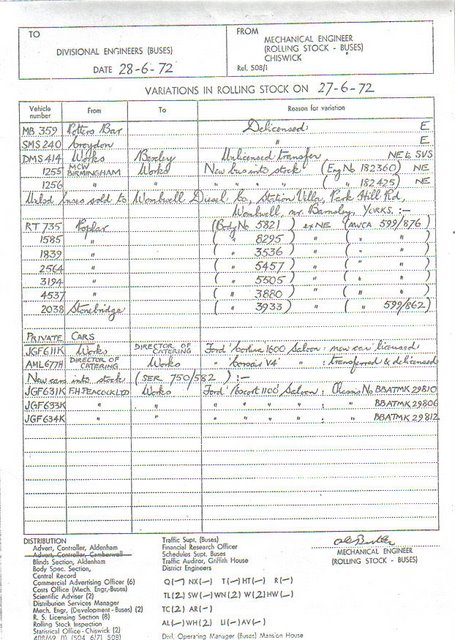 TO
DIVISIONAL ENGINEERS (BUSES)
DATE 28-6-72
FROM
MECHANICAL ENGINEER
(ROLLING STOCK - BUSES)
CHISWICK
Ref. 508/1
VARIATIONS IN ROLLING STOCK ON 27-6-72
Vehicle number From To Reason for variation
MB 359 Potters Bar Delicensed E
SMS 240 Croydon " E
DMS 414 Works Bexley Unlicensed transfer NE to SVS
1255 MCW BIRMINGHAM Works New bus into stock (Eng No 182360) NE
1256 " " " " " " ( " 182425) NE
Unlsd buses sold to Wombwell Diesel Co, Station Villa, Park Hill Rd,
Wombwell, nr. Barnsley, YORKS. :—
RT 735 Poplar (Body No 5821) ex NE (MWCA 599/876)
1585 " ( " 8295 ) " ( " " )
1839 " ( " 3536 ) " ( " " )
2564 " ( " 5457 ) " ( " " )
3194 " ( " 5505 ) " ( " " )
4537 " ( " 3880 ) " ( " " )
2038 Stonebridge ( " 3933 ) " ( " 599/862)
PRIVATE CARS
JGF611K Works DIRECTOR OF CATERING Ford 'Cortina 1600 Saloon : new car licensed
AML677H DIRECTOR OF CATERING Works " 'Corsair V4' " : transferred & delicensed
New cars into stock (SER 750/582) :—
JGF631K F.H. PEACOCK LTD Works Ford 'Escort 1100' Saloon : Chassis No BBATMK 29810
JGF633K " " " " " : " BBATMK 29806
JGF634K " " " " " : " BBATMK 29812
DISTRIBUTION
Advert. Controller, Aldenham
Advert. Controller, Camberwell
Blinds Section, Aldenham
Body Spec. Section,
Central Record
Commercial Advertising Officer (6)
Costs Office (Mech. Engr.-Buses)
Scientific Adviser (2)
Distribution Services Manager
Mech. Engr. (Development - Buses) (2)
R. S. Licensing Section (8)
Rolling Stock Inspection
Statistical Office - Chiswick (2)
Traffic Supt. (Buses)
Financial Research Officer
Schedules Supt. Buses
Traffic Auditor, Griffith House
District Engineers
Q(—) NX(—) T(—) HT(—) R(—)
TL(2) SW(—) WN(2) W(2) HW(—)
TC(2) AR(—)
AL(—) WH(2) LI(—) AV(—)
Divl. Operating Manager (Buses) Mansion House
MECHANICAL ENGINEER
(ROLLING STOCK - BUSES)